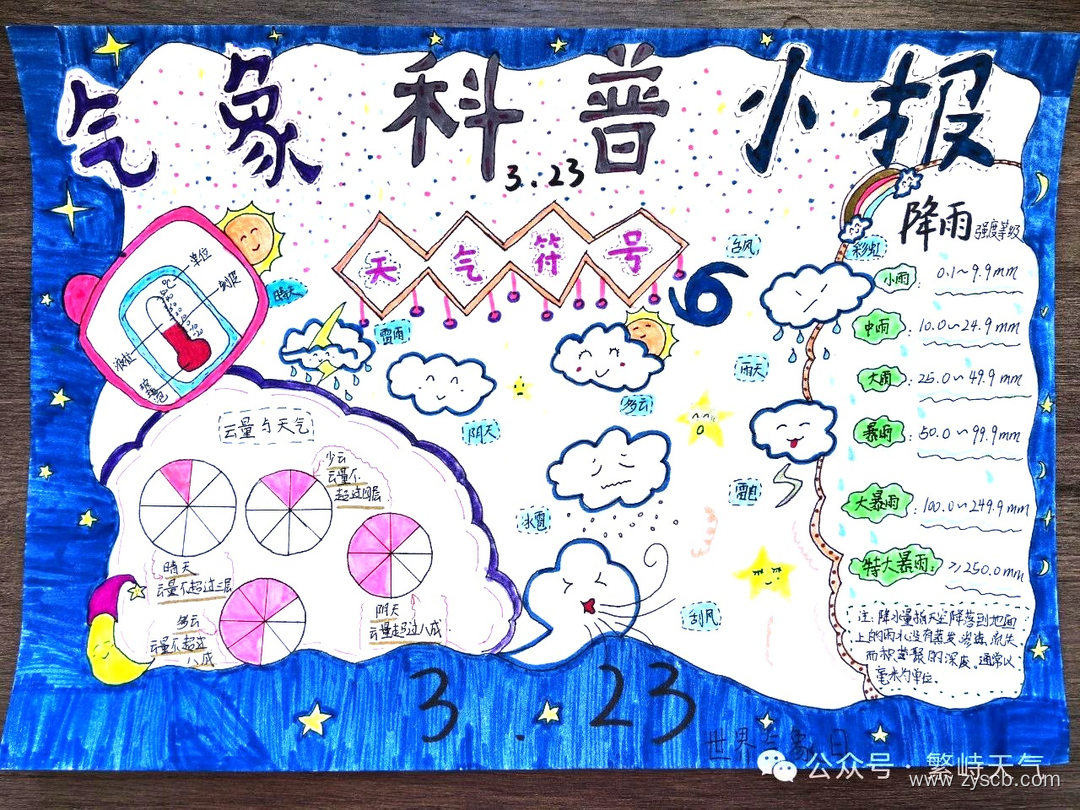 气象科普小报
3.23
天气符号
台风
彩虹
降雨强度等级
小雨:0.1~9.9mm
中雨:10.0~24.9mm
大雨:25.0~49.9mm
暴雨:50.0~99.9mm
大暴雨:100.0~249.9mm
特大暴雨:≥250.0mm
注:降水量指天空降落到地面
上的雨水,没有蒸发、渗透、流失
而积蓄的深度,通常以
毫米为单位。
单位
刻度
液柱
晴天
雷雨
阴天
多云
雨天
冰雹
雷电
刮风
云量与天气
少云
云量不
超过四层
晴天
云量不超过三层
多云
云量不超过
八成
阴天
云量超过八成
3.23
世界气象日
公众号·繁峙天气
www.zyscb.com